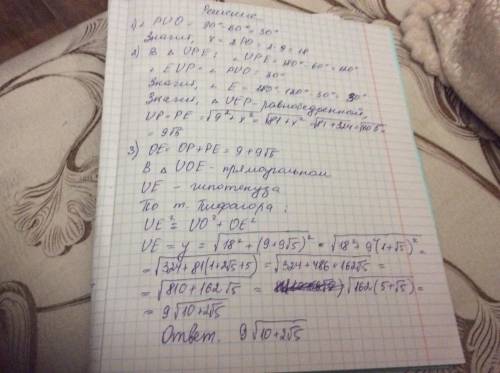 Решение
1) ∠ PUO = 90° - 60° = 30°
Значит, x = 2PO = 2·9 = 18
2) В △ UPE: ∠ UPE = 180° - 60° = 120°
∠ EUP = ∠ PUO = 30°
Значит, ∠ E = 180° - 120° - 30° = 30°
Значит, △ UEP - равнобедренный,
UP = PE = √9² + x² = √81 + x² = √81 + 324 = √405 =
= 9√5
3) OE = OP + PE = 9 + 9√5
В △ UOE - прямоугольном
UE - гипотенуза
По т. Пифагора:
UE² = UO² + OE²
UE = y = √18² + (9 + 9√5)² = √18² + 9²(1 + √5)² =
= √324 + 81(1 + 2√5 + 5) = √324 + 486 + 162√5 =
= √810 + 162√5 = √162(5 + √5) =
= 9√10 + 2√5
Ответ. 9√10 + 2√5